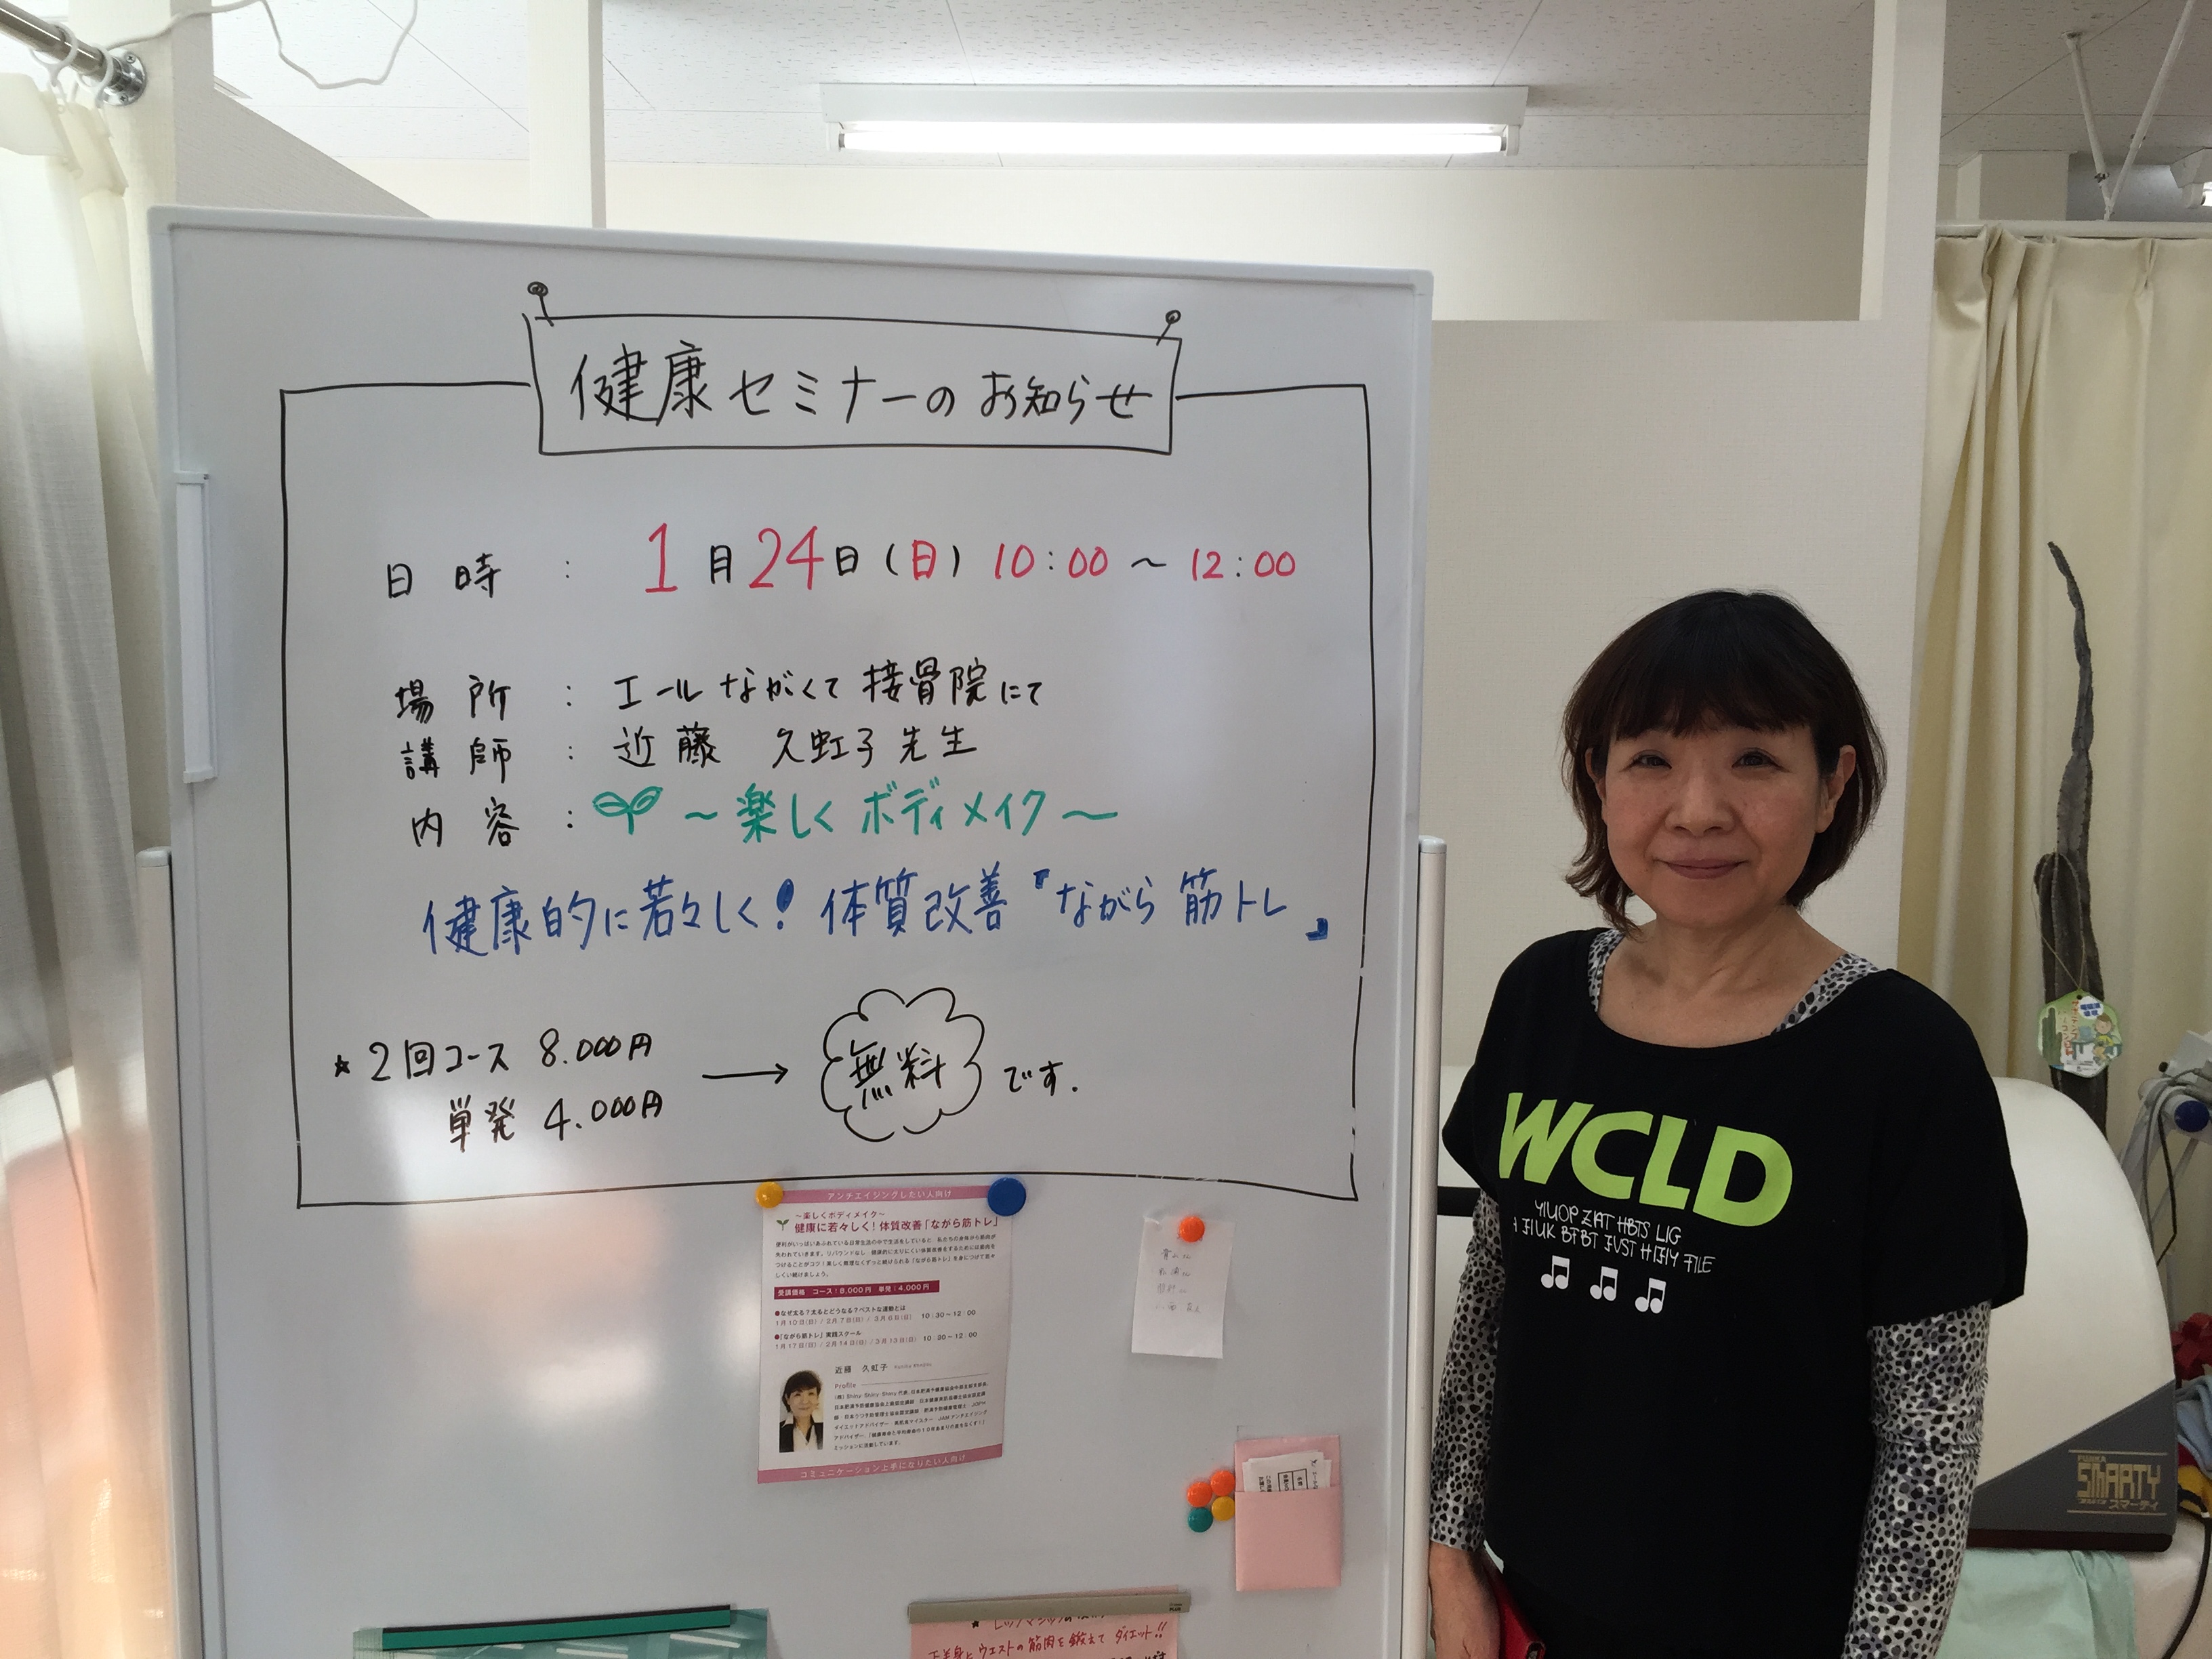 健康セミナーのお知らせ
日時 : 1月24日(日) 10:00 〜 12:00
場所 : エールながくて接骨院にて
講師 : 近藤 久虹子先生
内容 : 〜楽しくボディメイク〜
健康的に若々しく!体質改善『ながら筋トレ』
★2回コース 8.000円
単発 4.000円
→ 無料 です.
アンチエイジングしたい人向け
〜楽しくボディメイク〜
健康に若々しく!体質改善「ながら筋トレ」
受講価格 コース:8,000円 単発:4,000円
●なぜ太る?太るとどうなる?ベストな運動とは
1月10日(日) / 2月7日(日) / 3月6日(日) 10:30〜12:00
●「ながら筋トレ」実践スクール
1月17日(日) / 2月14日(日) / 3月13日(日) 10:30〜12:00
近藤 久虹子
Profile
コミュニケーション上手になりたい人向け
ウエストの筋肉を鍛えて ダイエット!!
WCLD
YIUOP ZIAT HBTS LIG
FUJIKA
SMARTY
フジカ スマーティ